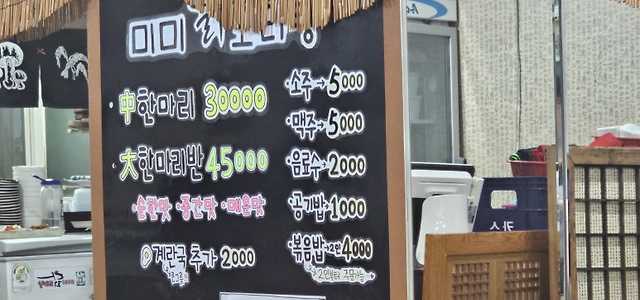 미미 닭도리탕
中 한마리 30000
大 한마리반 45000
·순한맛 ·중간맛 ·매운맛
계란국 추가 2000
·소주→5000
·맥주→5000
·음료수→2000
·공기밥→1000
·볶음밥→2인 4000
2인부터 주문가능
카스